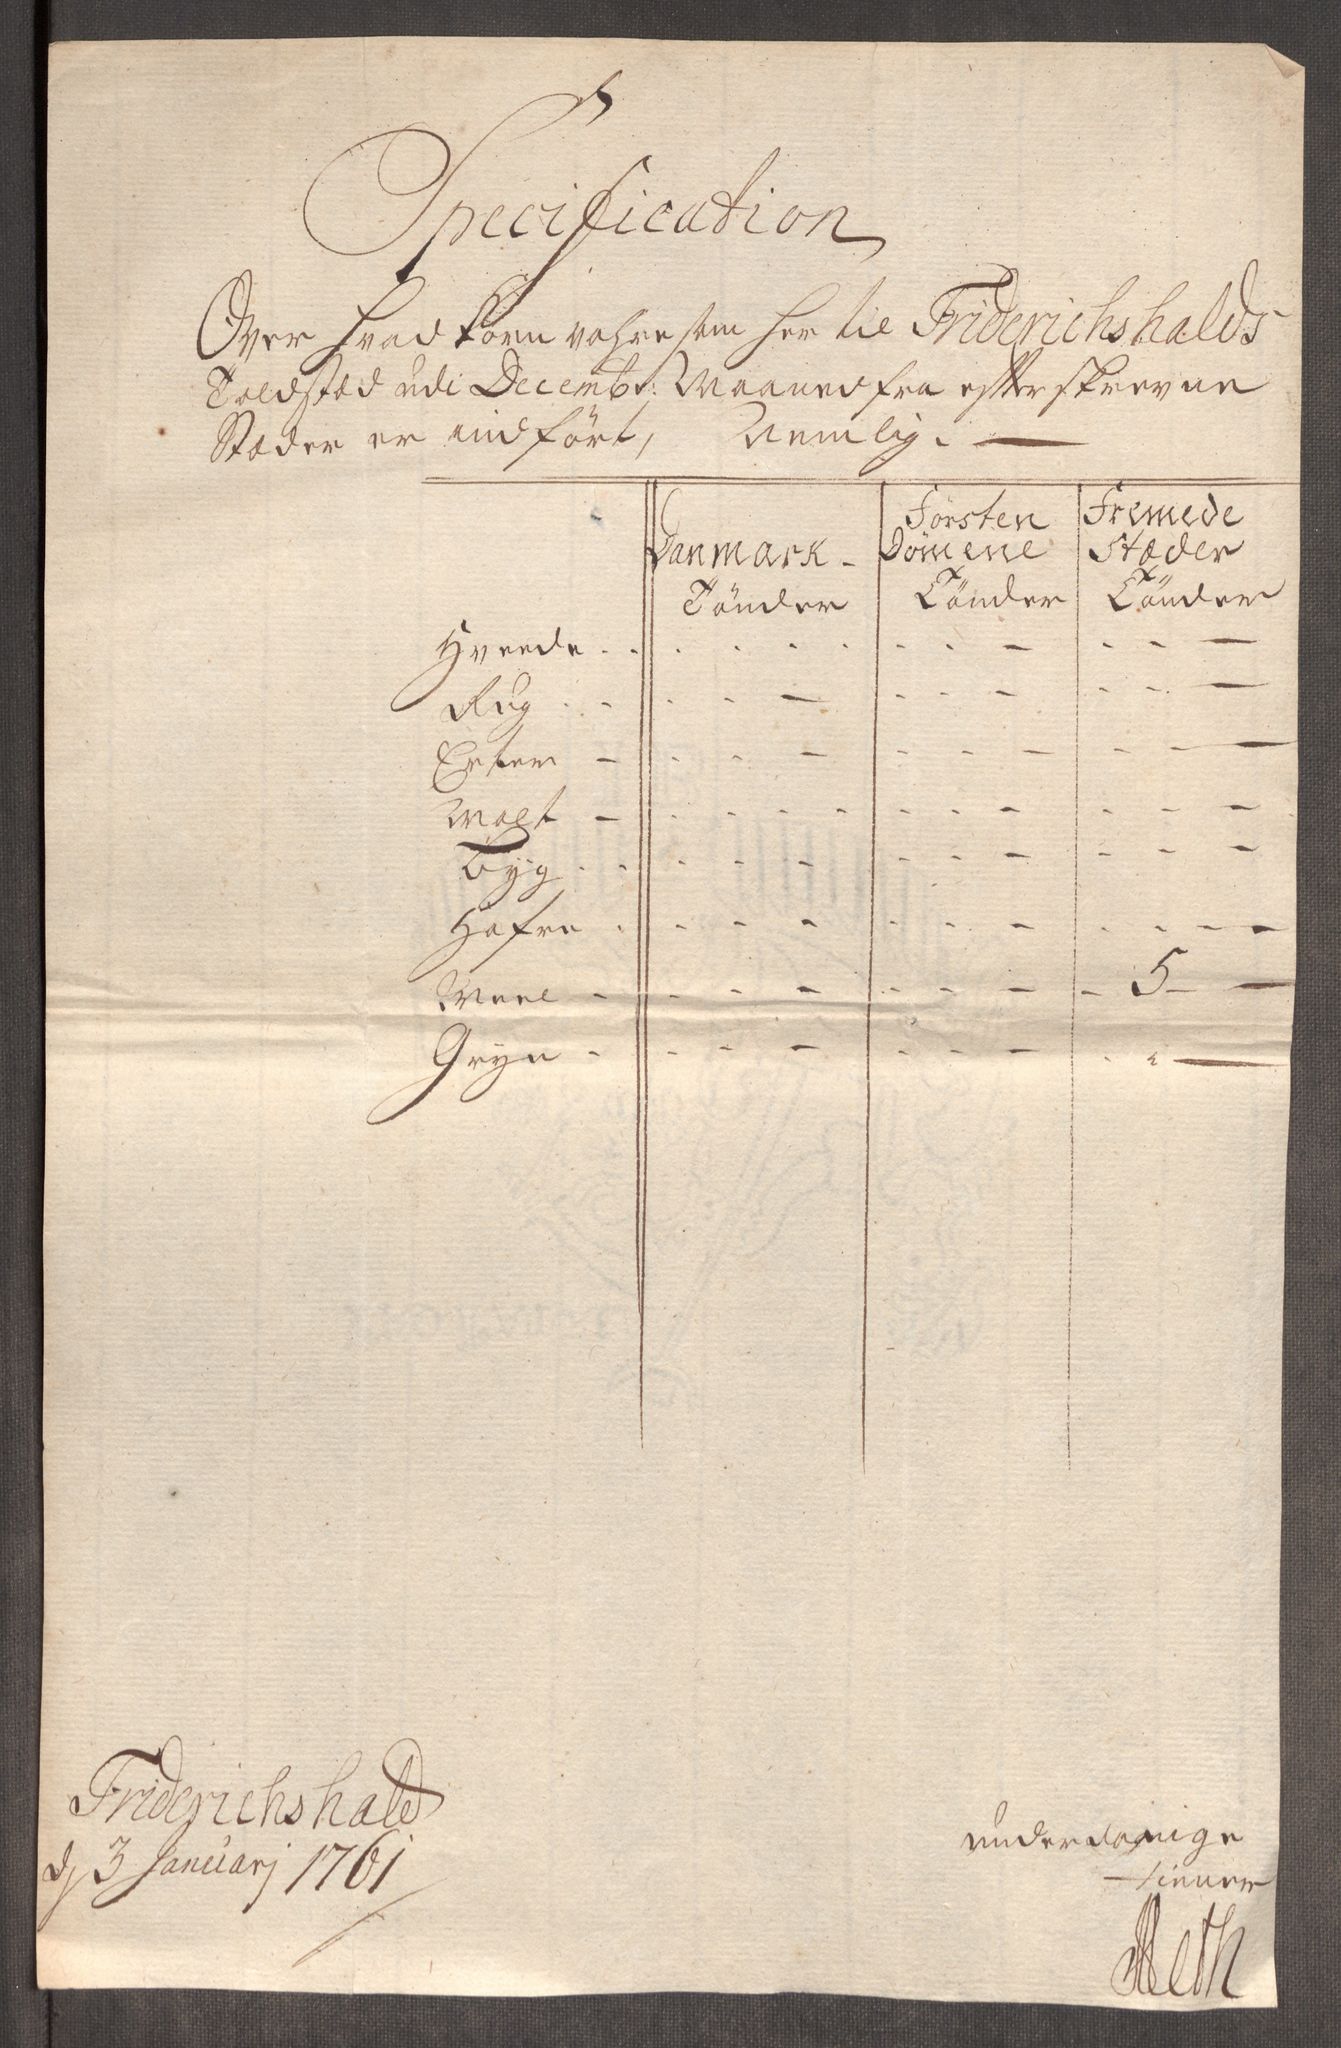 Specification
Over hvad Korn vahre som her til Friderichshalds
Toldstæd udi Decembr: Maaned fra efterskrevne
Stæder er indført, Nemlig. —
Danmark - Försten Dömene Fremede Stæder
Tönder Tönder Tönder
Hveede . . . . . . . . . - . . -
Rug . . . . - . . - . . -
Erter - . . - . . - . - -
Malt - . . . . . . - . - -
Byg . . . . - . . - . - -
Hafre . . - - . . - . . . -
Meel - . - - . . - - 5 - -
Gryn - . . - . . - . . -
Friderichshald
dj 3 Januarj 1761
underdanige
tienner